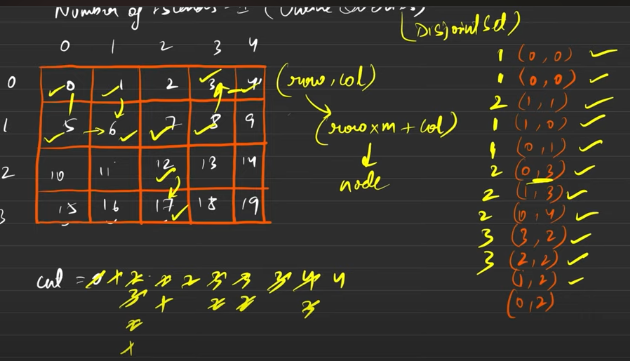 Number of Islands - II (Online Queries)
(Disjoint Set
0 1 2 3 4
0 0 1 2 3 4
1 5 6 7 8 9
2 10 11 12 13 14
3 15 16 17 18 19
(row, col)
(row x m + col)
node
1 (0, 0)
1 (0, 0)
2 (1, 1)
1 (1, 0)
1 (0, 1)
2 (0, 3)
2 (1, 3)
2 (0, 4)
3 (3, 2)
3 (2, 2)
(1, 2)
(0, 2)
cnt = 0 1 2 2 2 3 3 3 4 4
3 1 2 2 3
2
1